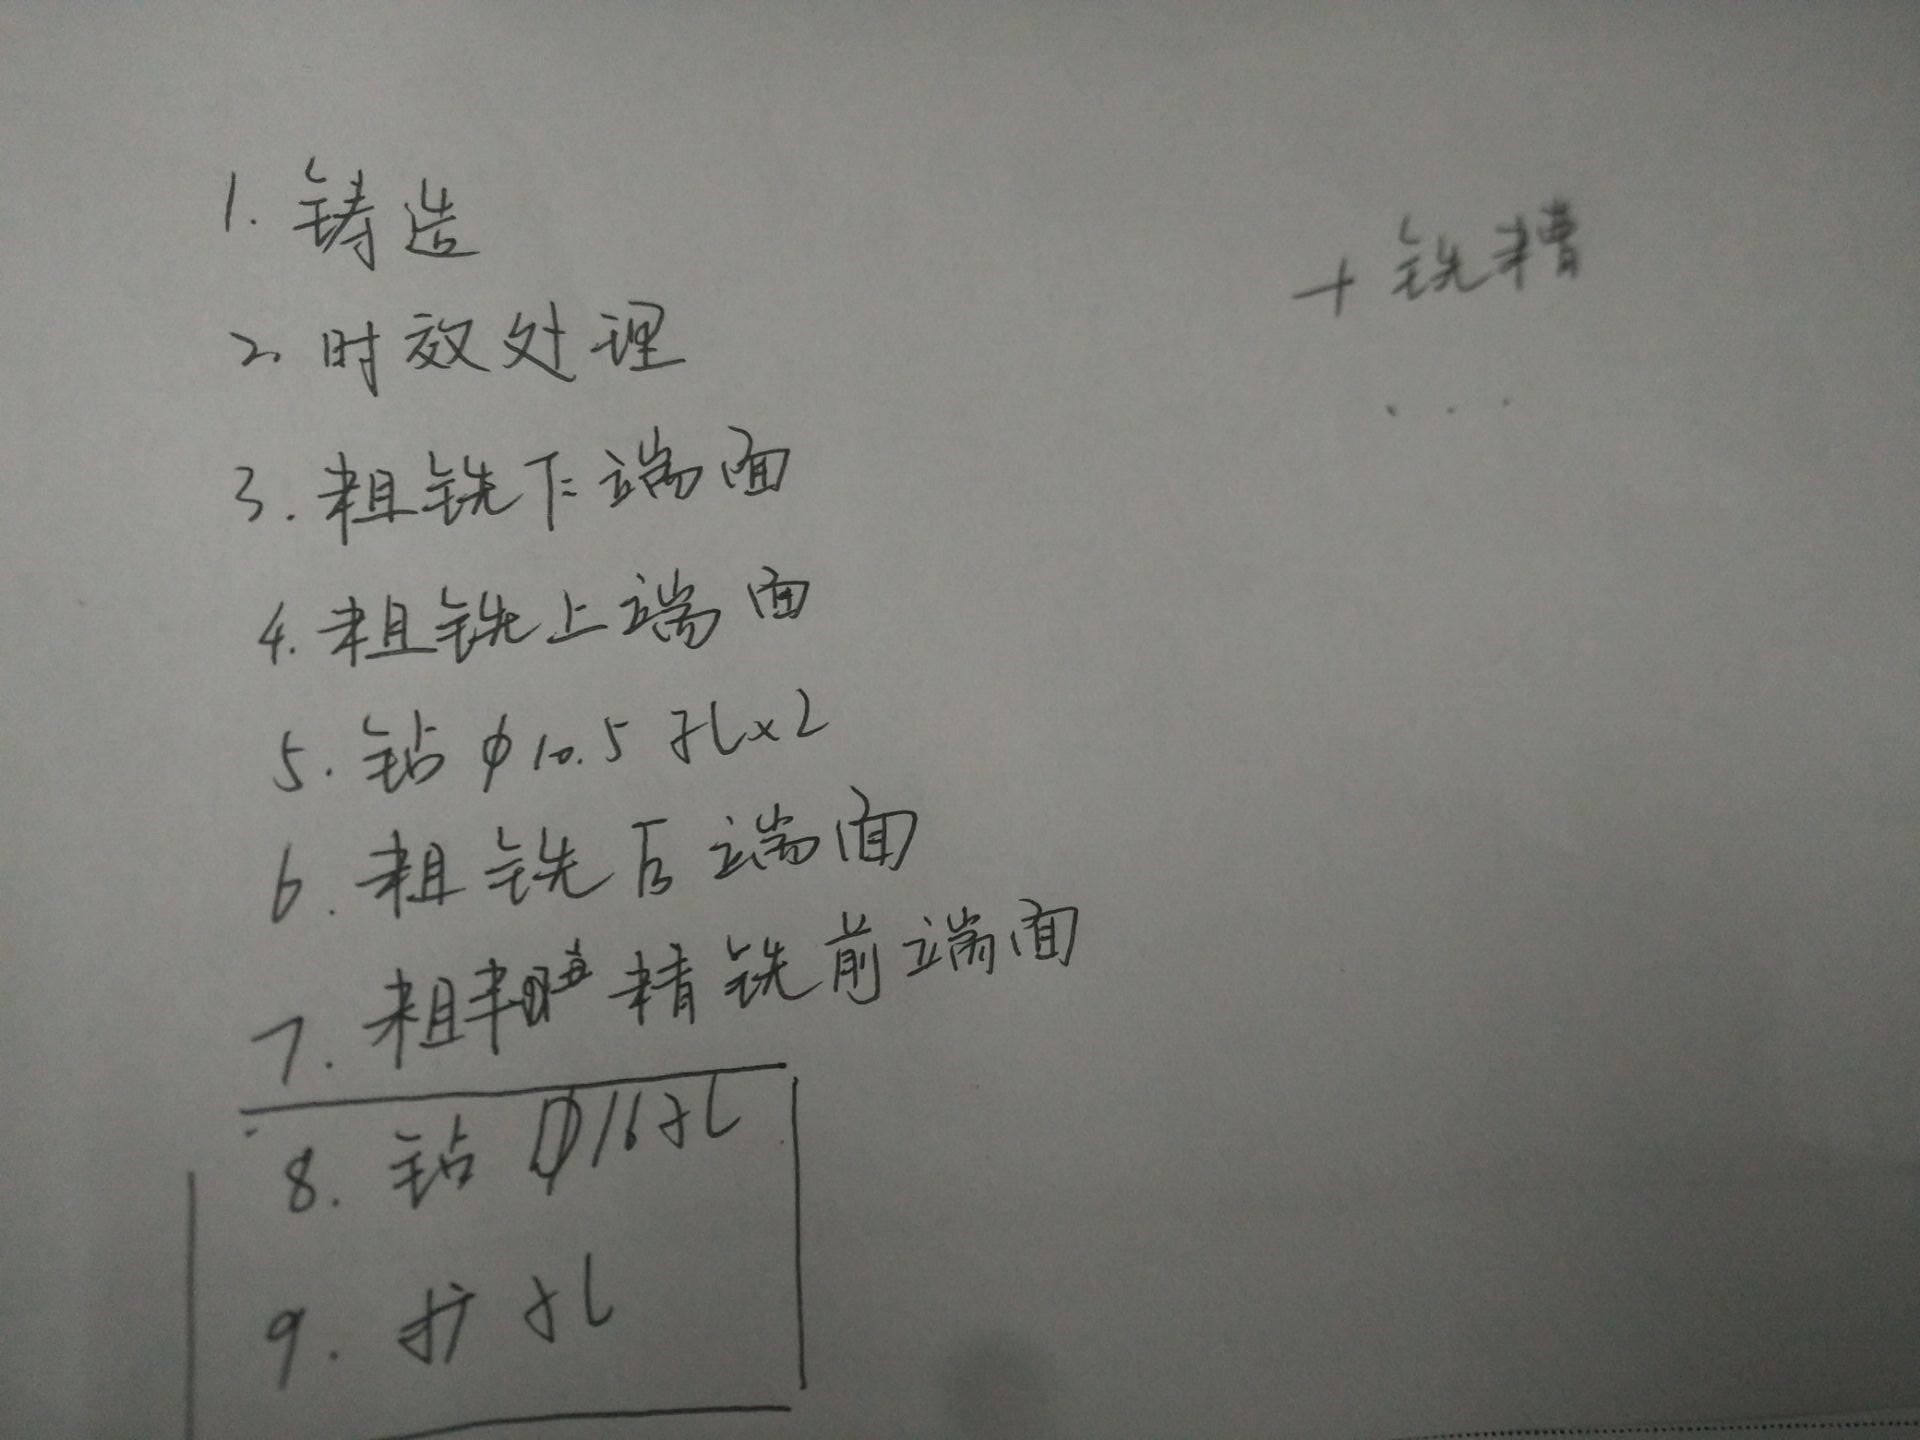 1. 铸造
2. 时效处理
3. 粗铣下端面
4. 粗铣上端面
5. 钻φ10.5孔×2
6. 粗铣后端面
7. 粗半精铣前端面
8. 钻φ16孔
9. 扩孔
+ 铣糟
...